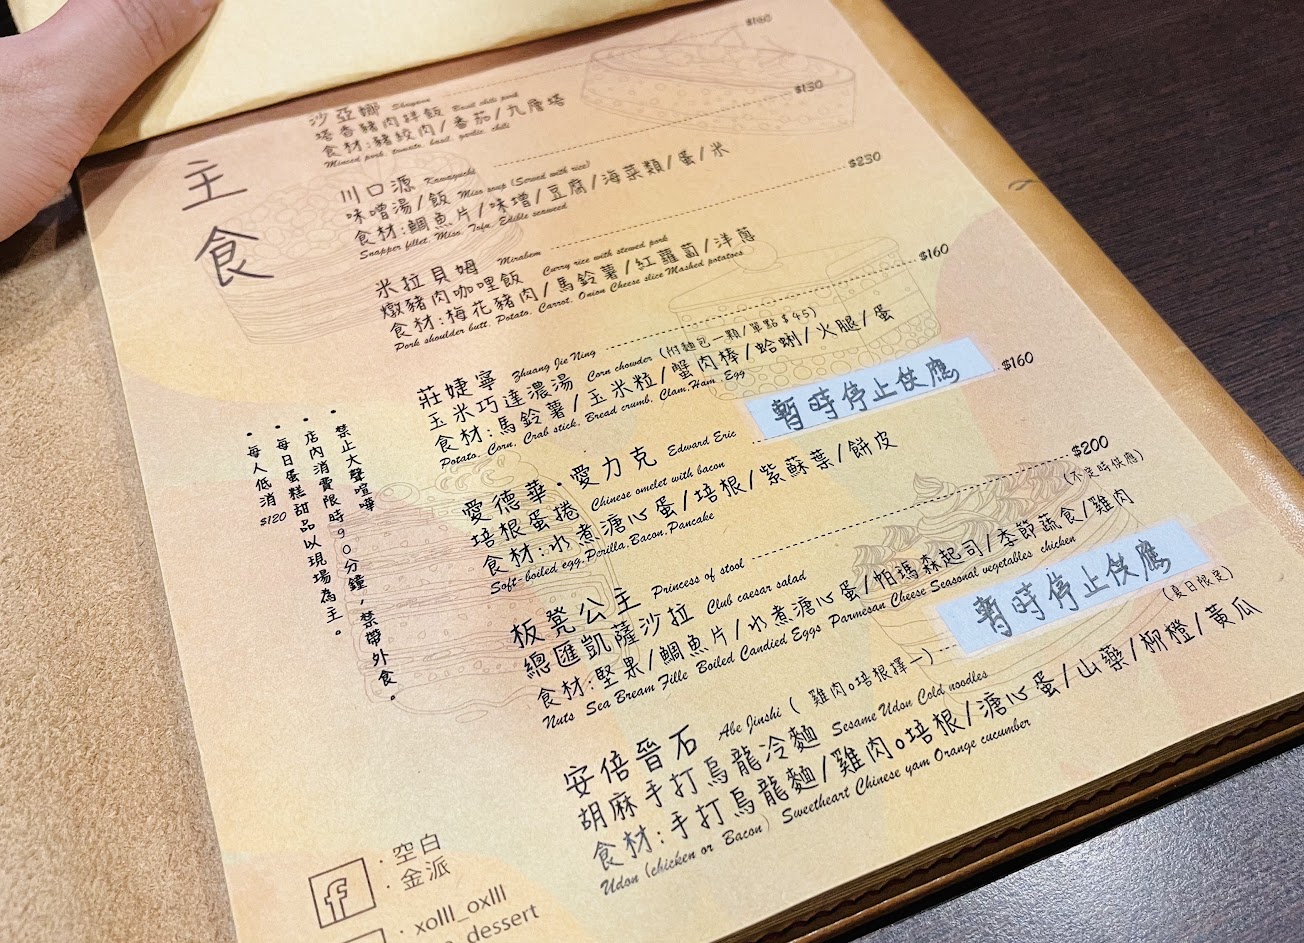 主食
沙亞娜 Shayana Basil chili pork $160
塔香豬肉拌飯
食材:豬絞肉/番茄/九層塔
Minced pork, tomato, basil, garlic, chili
川口源 Kawaguchi $130
味噌湯/飯 Miso soup (Served with rice)
食材:鯛魚片/味增/豆腐/海菜類/蛋/米
Snapper fillet, Miso, Tofu, Edible seaweed
米拉貝姆 Mirabem $230
燉豬肉咖哩飯 Curry rice with stewed pork
食材:梅花豬肉/馬鈴薯/紅蘿蔔/洋蔥
Pork shoulder butt, Potato, Carrot, Onion Cheese slice Mashed potatoes
莊婕寧 Zhuang Jie Ning $160
玉米巧達濃湯 Corn chowder (附麵包一顆/單點$45)
食材:馬鈴薯/玉米粒/蟹肉棒/蛤蜊/火腿/蛋
Potato, Corn, Crab stick, Bread crumb, Clam,Ham ,Egg
愛德華·愛力克 Edward Eric 暫時停止供應 $160
培根蛋捲 Chinese omelet with bacon
食材:水煮溏心蛋/培根/紫蘇葉/餅皮
Soft-boiled egg,Perilla,Bacon,Pancake
板凳公主 Princess of stool $200
總匯凱薩沙拉 Club caesar salad (不定時供應)
食材:堅果/鯛魚片/水煮溏心蛋/帕瑪森起司/季節蔬食/雞肉
Nuts Sea Bream Fille Boiled Candied Eggs Parmesan Cheese Seasonal vegetables chicken
安倍晉石 Abe Jinshi ( 雞肉o培根擇一) 暫時停止供應
胡麻手打烏龍冷麵 Sesame Udon Cold noodles (夏日限定)
食材:手打烏龍麵/雞肉o培根/溏心蛋/山藥/柳橙/黃瓜
Udon (chicken or Bacon) Sweetheart Chinese yam Orange cucumber
• 禁止大聲喧嘩
• 店內消費限時90分鐘,禁帶外食。
• 每日蛋糕甜品以現場為主。
• 每人低消$120
f : 空白
: 金派
: xolll_oxlll
dessert